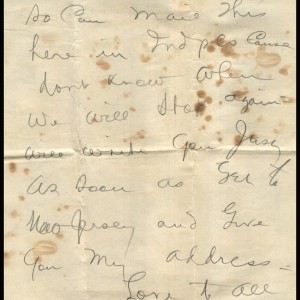 So Can Mail This
here in Indpls Cause
dont Know when
We will Stop again
will write you Jersy
As Soon as Get to
New Jersey and Give
You My address-
Love to all